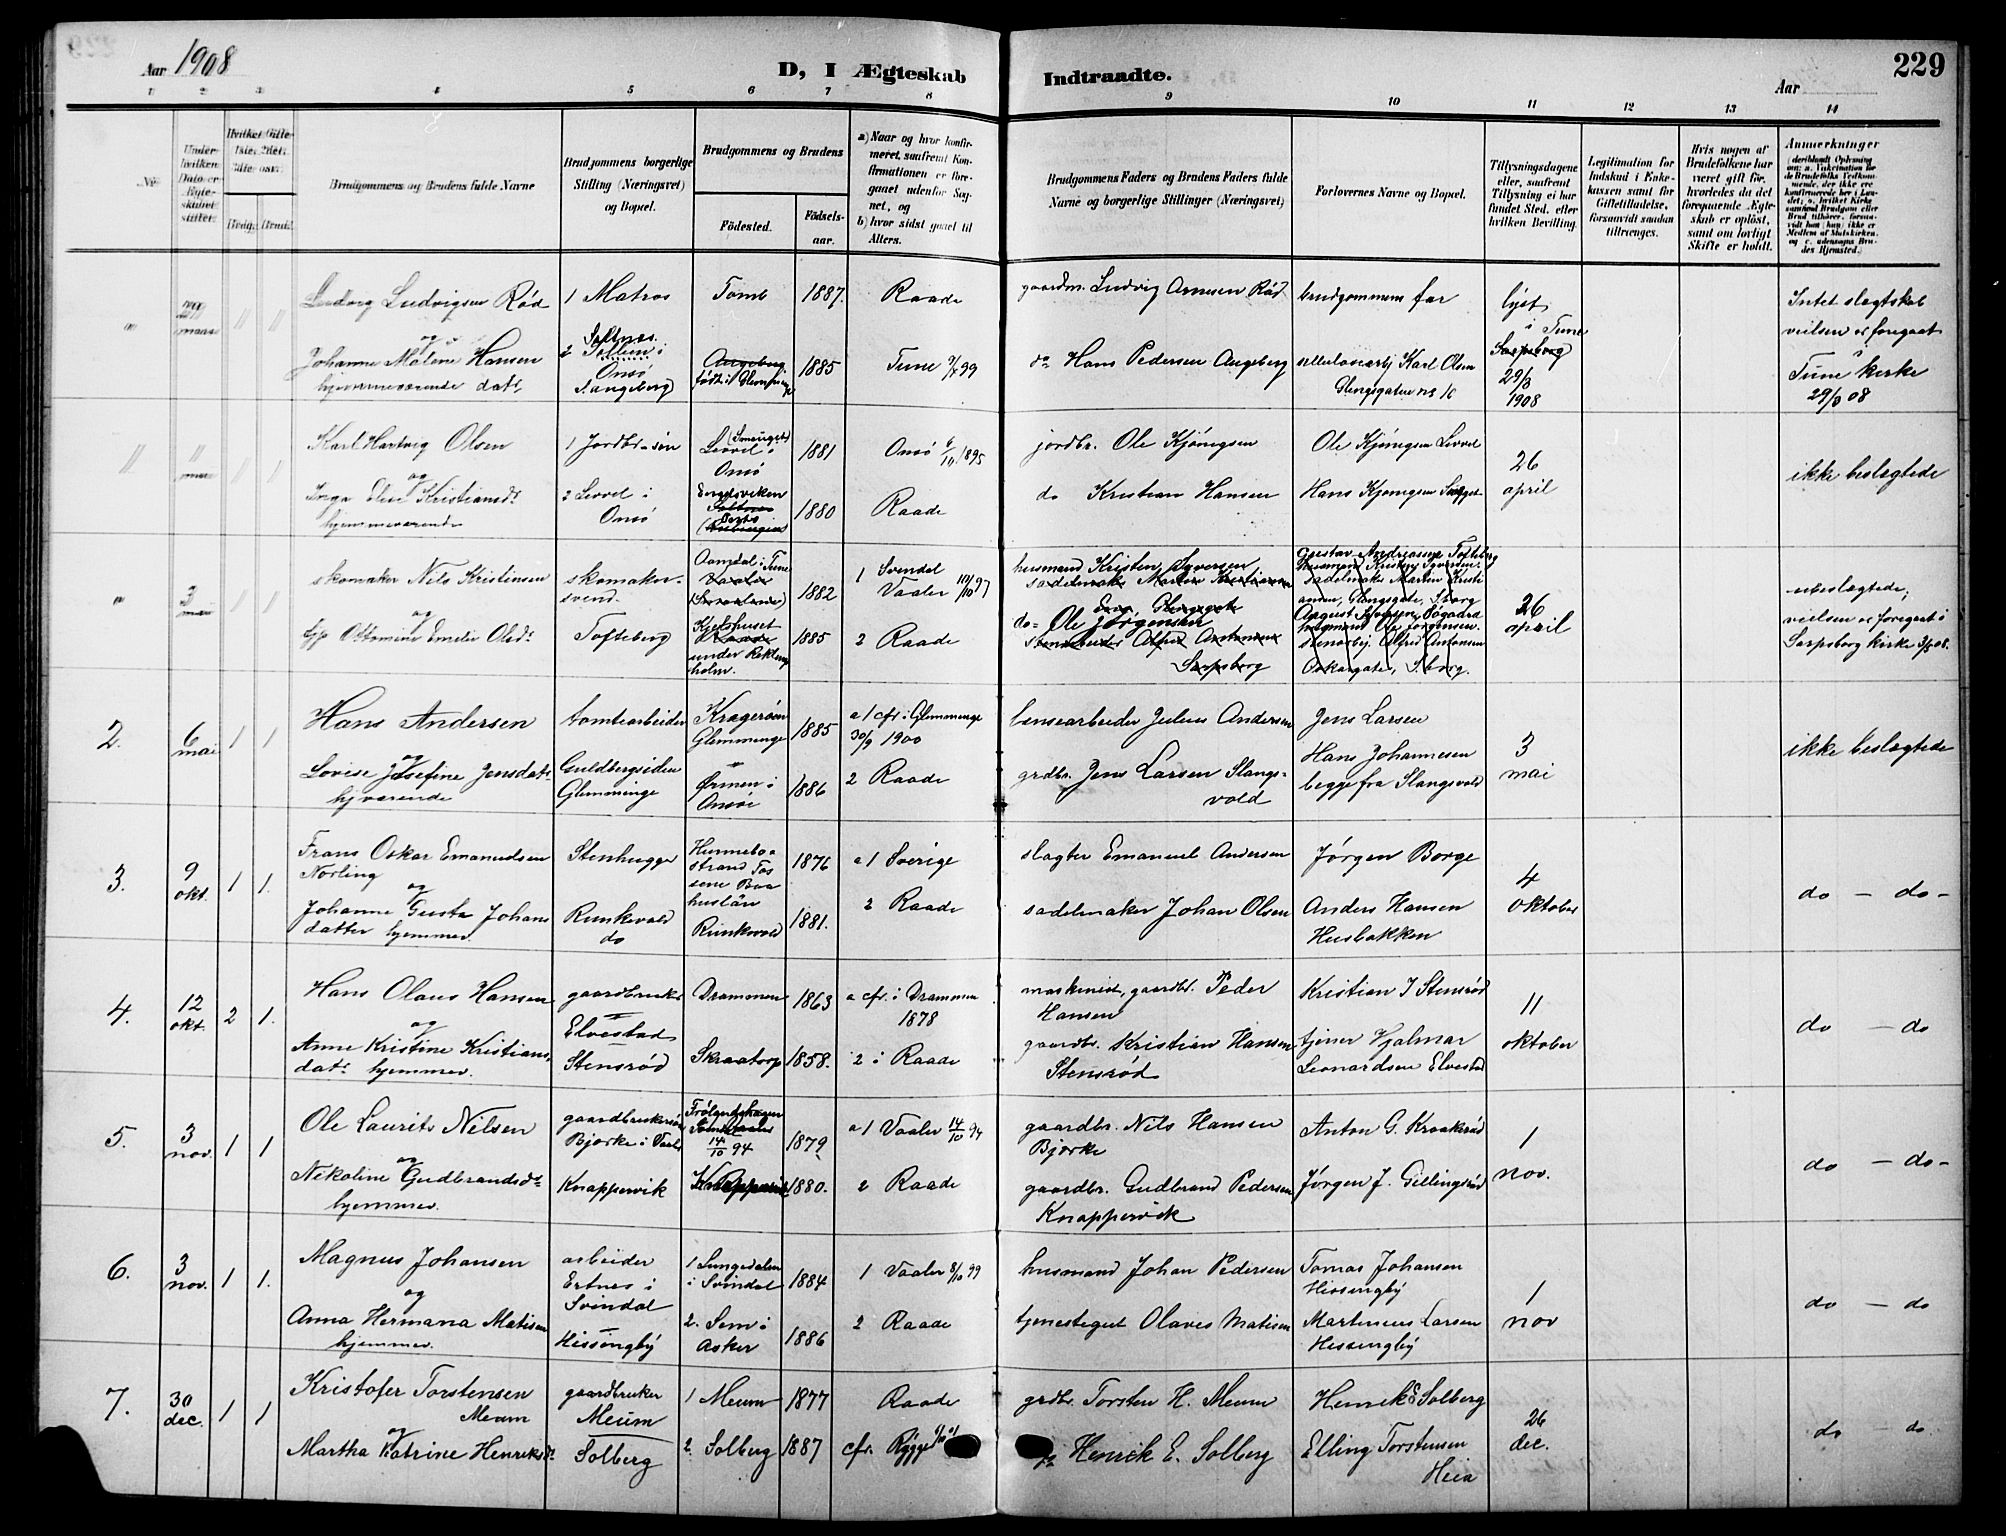 Aar 1908
D, I Ægteskab Indtraadte.
229
Aar
1 2 3 4 5 6 7 8 9 10 11 12 13 14
No.
Under hvilken Dato er Ægteskabet stiftet.
Brudg. Brud.
Brudgommens og Brudens fulde Navne
Brudgommens borgerlige Stilling (Næringsvei) og Bopæl.
Brudgommens og Brudens
Fødested.
Fødselsaar.
a) Naar og hvor konfirmeret, saafremt Konfirmationen er foregaaet udenfor Sognet, og
b) hvor sidst gaaet til Alters.
Brudgommens Faders og Brudens Faders fulde Navne og borgerlige Stillinger (Næringsvei)
Forlovernes Navne og Bopæl.
Tillysningsdagene eller, saafremt Tillysning ei har fundet Sted, efter hvilken Bevilling.
Legitimation for Indskud i Enkekassen samt for Giftetilladelse, forsaavidt saadan tiltrænges.
Hvis nogen af Brudefolkene har været gift før, hvorledes da det foregaaende Ægteskab er opløst, samt om lovligt Skifte er holdt.
Anmerkninger
Ludvig Ludvigsen Rød
og
Johanne Malene Hansen
hjemmeværende datr
1 Matros
2 Onsø
Tomb
1887.
1885
Raade
Tune
gaardm. Ludvig Arnesen Rød
do Hans Pedersen Angeberg
brudgommens far
Karl Olsen
Glengsgaten no 16
lyst i Tune
Sarpsborg
29/3
1908
Intet slægtskab
vielsen er foregaat i
Tune kirke
29/3 08
Karl Hartvig Olsen
og
Inga Elise Kristiansdr
hjemmeværende
1 Jordbr. søn
2 Levvel i
Onsø
Levvel i
Onsø
1881
1880
Onsø 1895
Raade
jordbr. Ole Kjønigsen
do Kristian Hansen
Ole Kjønigsen Levvel
Hans Kjønigsen
26
april
ikke beslegtede
3
mai
skomaker Nils Kristensen
og
Ottomine Emelie Olsdr
skomaker-
svend.
Tofteberg
Aamdal i Tune
Vaaler
Kjelshuset
Raade
under
holm.
1882
1885
1 Svendal
Vaaler
2 Raade
husmand Kristen Syversen
sadelmaker Martin Kristiansen
do- Ole Jørgensen
Alfred Antonsen
Sarpsborg
Gustav Andreassen Tofteberg
sadelmaker Martin Kristiansen, Glengsgate, Sborg
Alfred Antonsen
Oskarsgate, Sborg.
26
april
ubeslegtede;
vielsen er foregaat i
Sarpsborg kirke 3/5 08.
2.
6
mai
1 1
Hans Andersen
og
Lovise Josefine Jensdatr
hjværende
tomtearbeider
Guldbergsiden
Glemminge
Kragerøen
Glemmenge
Ørmen i
Onsøe
1885
1886
a 1 cfr. i Glemmenge
30/9 1900
2 Raade
lensearbeider Julius Andersen
grdbr. Jens Larsen Slangs-
vold
Jens Larsen
Hans Johannesen
begge fra Slangsvold
3
mai
ikke beslegtede
3.
9
okt.
1 1.
Frans Oskar Emanuelsen
Norling
og
Johanne Gusta Johans
datter hjemmev.
Stenhugger
Runkevold
do
Hunnebo-
strand Tos
sene Boa
huslän
Runkevold
1876
1881.
a 1 Sverige
2 Raade
slagter Emanuel Andersen
sadelmaker Johan Olsen
Jørgen Borge
Anders Hansen
Husbakken
4
oktober
do — do -
4.
12
okt.
2 1.
Hans Olaus Hansen
og
Anne Kristine Kristians
datr hjemmev.
gaardbruker
Elvestad
Stensrød
Drammen
Skraatorp
1863
1858.
a cfr. i Drammen
1878
2 i Raade
maskinist, gaardbr. Peder
Hansen
gaardbr. Kristian Hansen
Stensrød
Kristian J Stensrød
tjener Hjalmar
Leonardsen Elvestad
11
oktober
do — do
5.
3
nov.
1 1
Ole Laurits Nilsen
og
Nikoline Gudbrandsdr
hjemmev.
gaardbrukersøn
Bjørke i Vaaler
Knappervik
14/10 94
Knappervik
1879
1880.
a 1 Vaaler 14/10 94
2 Raade
gaardbr. Nils Hansen
Bjørke
gaardbr. Gudbrand Pedersen
Knappervik
Anton G. Kraakerød
Jørgen J. Gillingsrød
1
nov.
do — do -
6.
3
nov.
1 1.
Magnus Johansen
og
Anna Hermana Matisen
hjemmev.
arbeider
Ertnes i
Svindal
Hissingby
1 Lungedalen
i Svindal
2. Sem i
Asker
1884
1886
1 Vaaler 8/10 99
2 Raade
husmand Johan Pedersen
tjenestegut Olaves Matisen
Tomas Johansen
Hissingby
Martinius Larsen
Hissingby
1
nov
do — do
7.
30
dec.
1 1
Kristofer Torstensen
Meum
og
Martha Katrine Henriksdr
gaardbruker
Meum
Solberg
1 Meum
2. Solberg
1877
1887
Raade
cfr. Rygge
grdbr. Torsten H. Meum
Henrik E. Solberg
Henrik E Solberg
Elling Torstensen
Heia
26
dec.
do — do